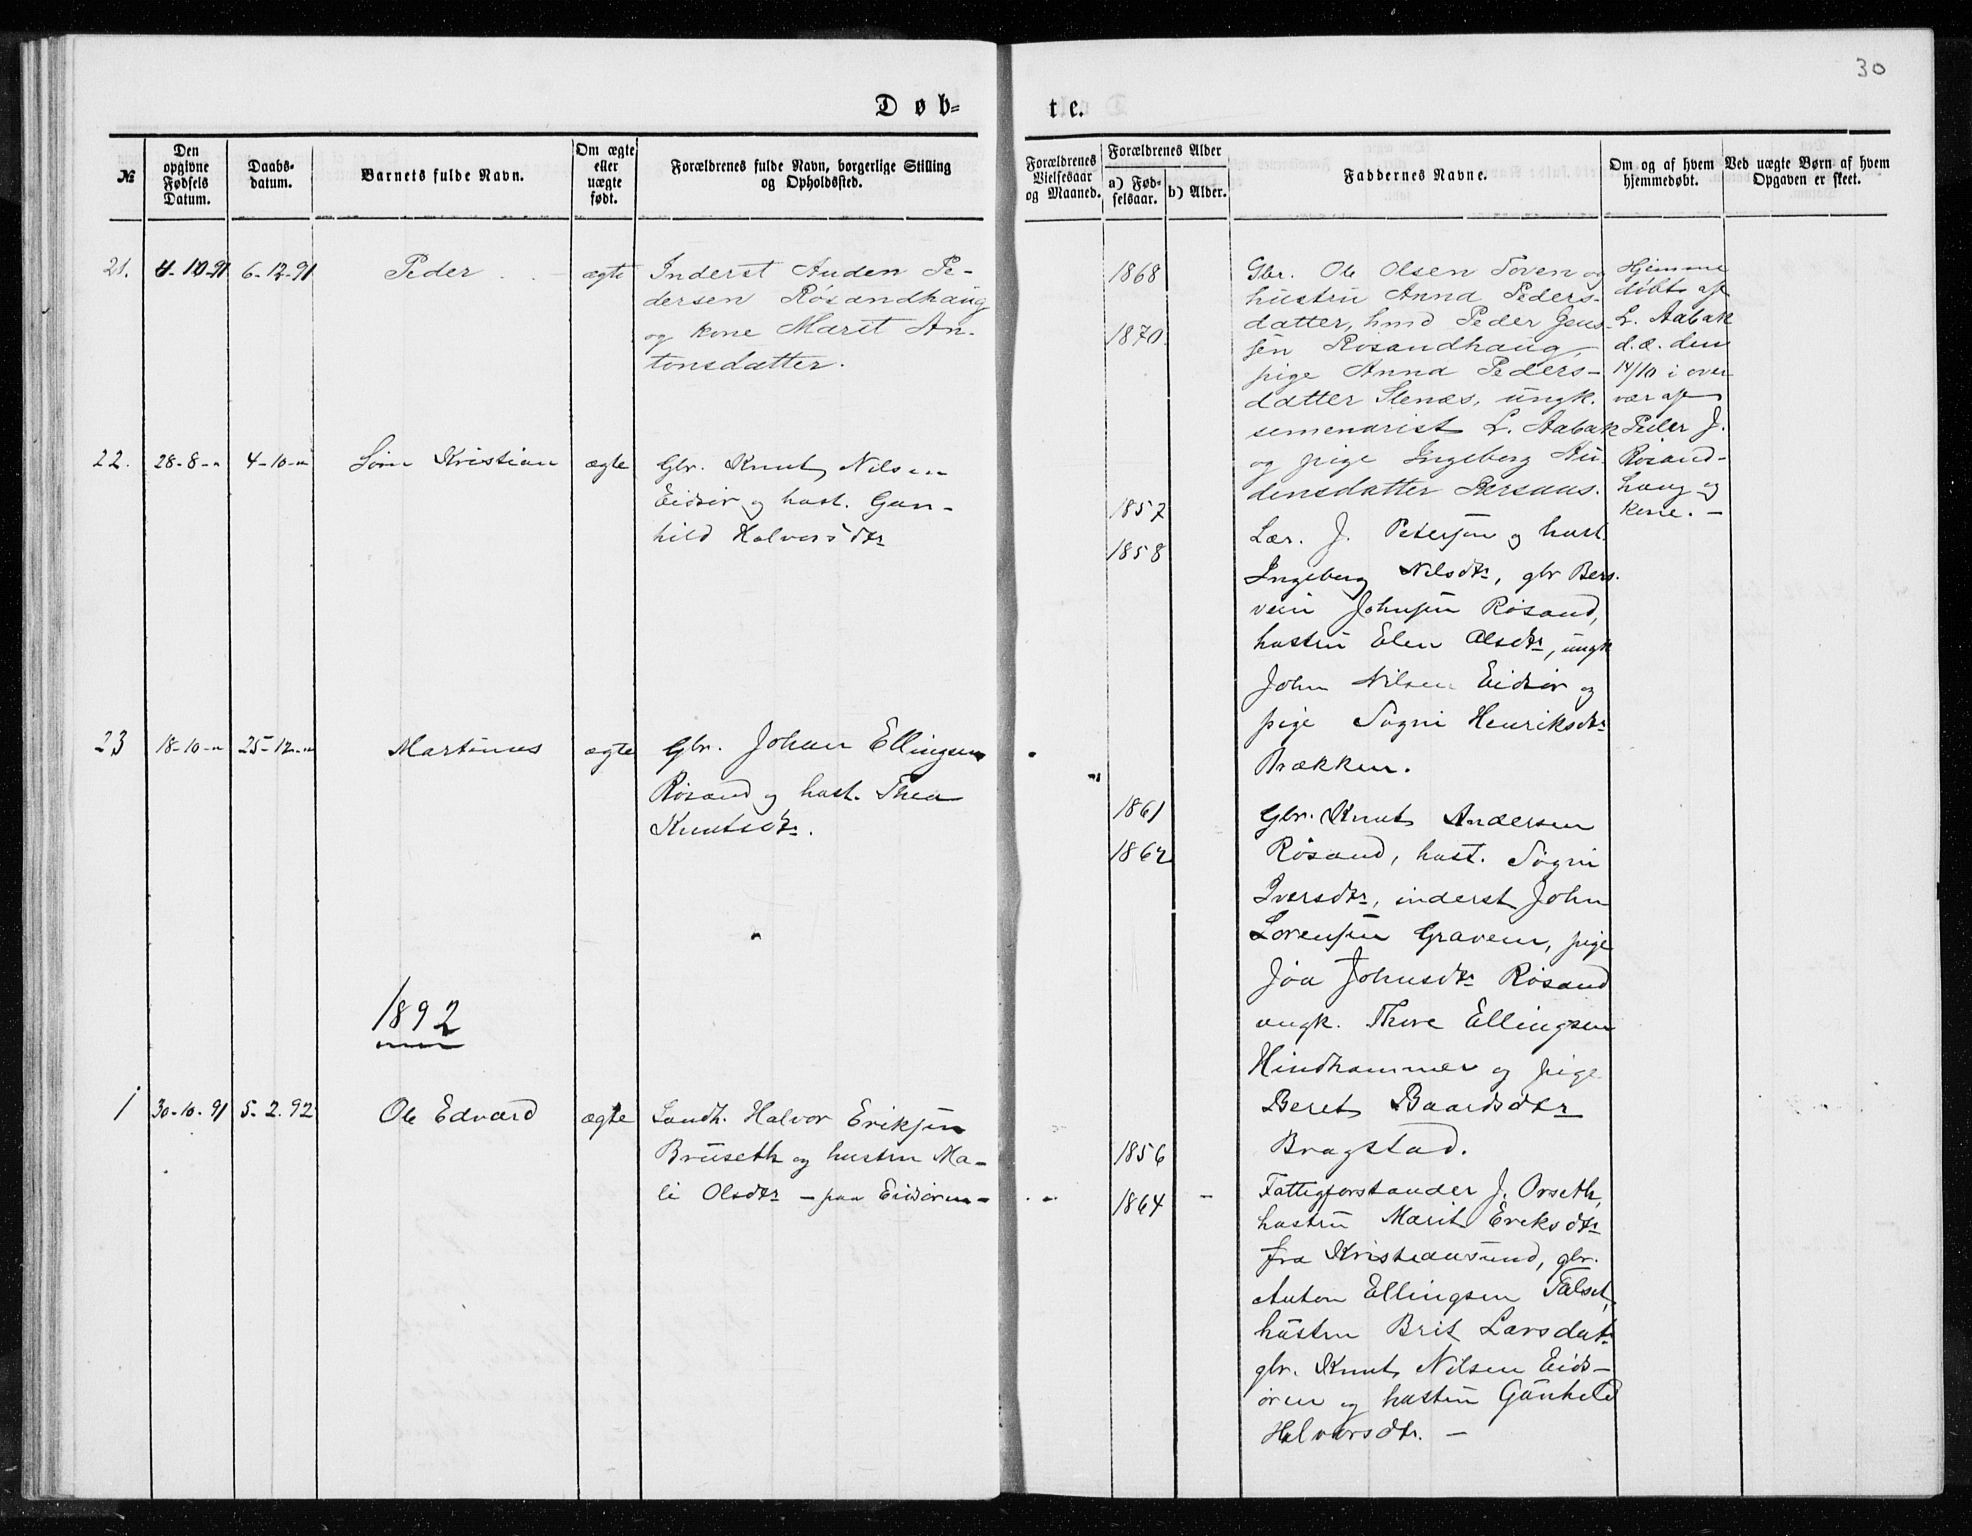 30
Døb-
te.
№
Den opgivne Fødsels Datum.
Daabs-datum.
Barnets fulde Navn.
Om ægte eller uægte født.
Forældrenes fulde Navn, borgerlige Stilling og Opholdssted.
Forældrenes Vielsesaar og Maaned.
Forældrenes Alder
a) Fødselsaar.
b) Alder.
Faddernes Navne.
Om og af hvem hjemmedøbt.
Ved uægte Børn af hvem Opgaven er skeet.
21. 4-10-91 6-12-91 Peder ægte
Inderst Auden Pe-
dersen Rósandhaug
og kone Marit An-
tonsdatter.
1868
1870
Gbr. Ole Olsen Toven og
hustru Anna Peders-
datter, Peder Jens-
sen Rosandhaug,
pige Anna Peders-
datter Stenæs, ungk.
semenarist L. Aabak
og pige Ingeborg Au-
densdatter
Hjemme
döbt af
L. Aabak
d. æ. den
14/10 i over
vær af
Peder J.
Rósand-
haug og
kone. -
22. 28-8-" 4-10-" Sörn Kristian ægte
Gbr. Knut Nilsen
Eidsör og hust. Gun-
hild Halvorsdtr
1857
1858
Lær. J. Petersen og hust.
Ingeborg Nilsdtr, gbr Bers-
vein Johnsen Rösand,
hustru Elen Olsdtr, ungk
John Nilsen Eidsör og
pige Sögni Henriksdtr
Brækken.
23 18-10-" 25-12-" Martinus ægte
Gbr. Johan Ellingsen
Rösand og hust. Thea
Knutsdtr.
1861
1862
Gbr. Knut Andersen
Rösand, hust. Sögni
Iversdtr, inderst John
Lorensen Gravem, pige
Jóa Johnsdtr Rósand
ungk. Thore Ellingsen
Hindhammer og pige
Beret Baardsdtr
Bragstad.
1892
1 30-10-91 5-2.92 Ole Edvard ægte
Landh. Halvor Eriksen
Brúseth og hustru Ma-
li Olsdtr - paa Eidsören -
1856
1864
Fattigforstander J. Orseth,
hustrú Marit Eriksdtr
fra Kristiansund, gbr.
Anton Ellingsen Talset,
hústru Brit Larsdatr
gbr. Knut Nilsen Eids-
ören og hustru Gúnhild
Halvorsdtr. -